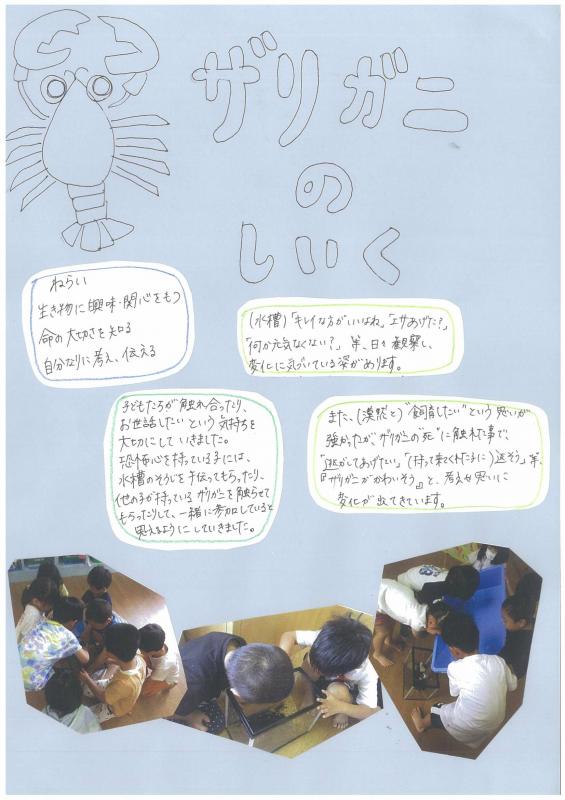 ザリガニ
の
しいく
ねらい
生き物に興味・関心をもつ
命の大切さを知る
自分なりに考え、伝える
(水槽)「キレイな方がいいよね」「エサあげた?」
「何か元気なくない?」等、日々観察し、
変化に気づいている姿があります。
子どもたちが触れ合ったり、
お世話したいという気持ちを
大切にしていきました。
恐怖心を持っている子には、
水槽のそうじを手伝ってもらったり、
他の子が持っているザリガニを触らせて
もらったりして、一緒に参加していると
思えるようにしていきました。
また、(漠然と)"飼育したい"という思いが
強かったが、ザリガニの"死"に触れた事で、
"逃がしてあげたい"(持って来てくれた子に)返そう"等、
『ザリガニがかわいそう』と、考えや思いに
変化が出てきています。